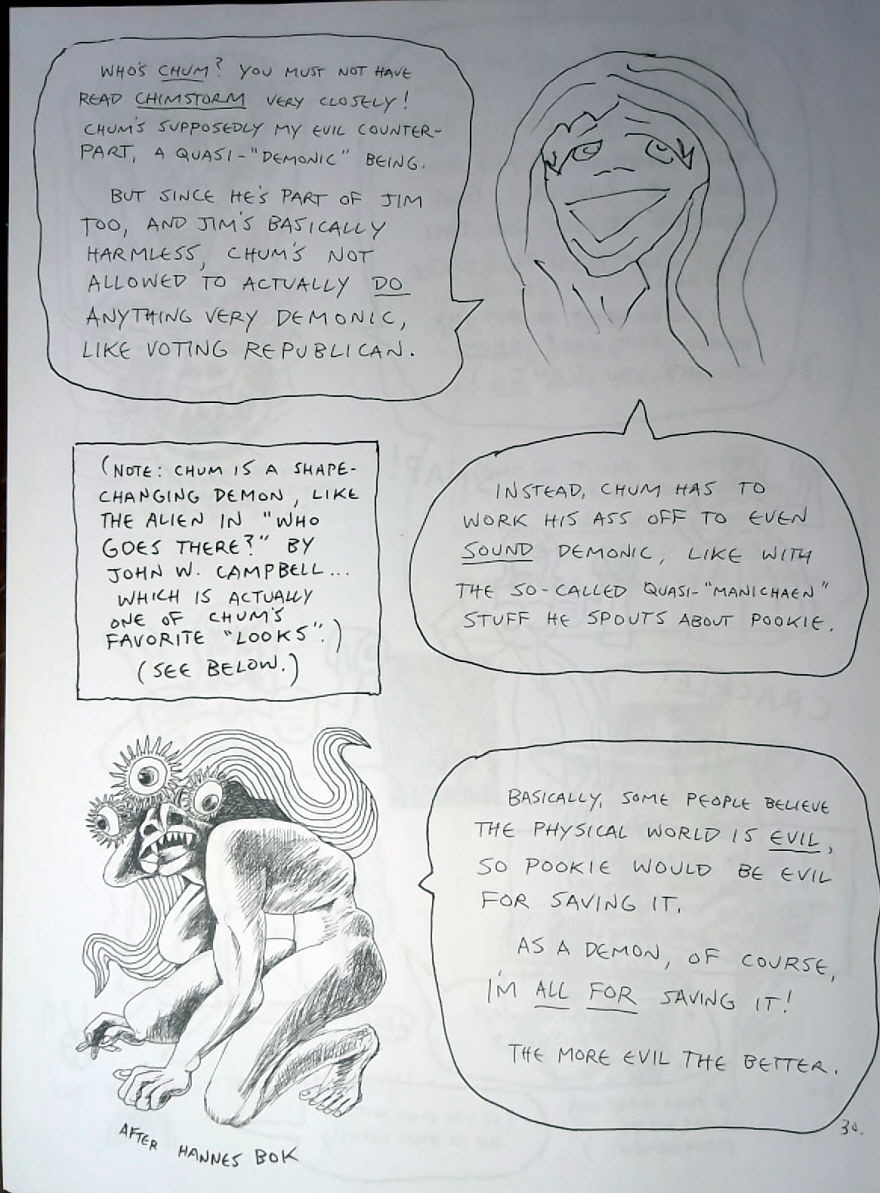 WHO'S CHUM? YOU MUST NOT HAVE
READ CHIMSTORM VERY CLOSELY!
CHUM'S SUPPOSEDLY MY EVIL COUNTER-
PART, A QUASI-"DEMONIC" BEING.
BUT SINCE HE'S PART OF JIM
TOO, AND JIM'S BASICALLY
HARMLESS, CHUM'S NOT
ALLOWED TO ACTUALLY DO
ANYTHING VERY DEMONIC,
LIKE VOTING REPUBLICAN.
INSTEAD, CHUM HAS TO
WORK HIS ASS OFF TO EVEN
SOUND DEMONIC, LIKE WITH
THE SO-CALLED QUASI-"MANICHAEN"
STUFF HE SPOUTS ABOUT POOKIE.
(NOTE: CHUM IS A SHAPE-
CHANGING DEMON, LIKE
THE ALIEN IN "WHO
GOES THERE?" BY
JOHN W. CAMPBELL...
WHICH IS ACTUALLY
ONE OF CHUM'S
FAVORITE "LOOKS".)
(SEE BELOW.)
BASICALLY, SOME PEOPLE BELIEVE
THE PHYSICAL WORLD IS EVIL,
SO POOKIE WOULD BE EVIL
FOR SAVING IT.
AS A DEMON, OF COURSE,
I'M ALL FOR SAVING IT!
THE MORE EVIL THE BETTER.
AFTER HANNES BOK
30.